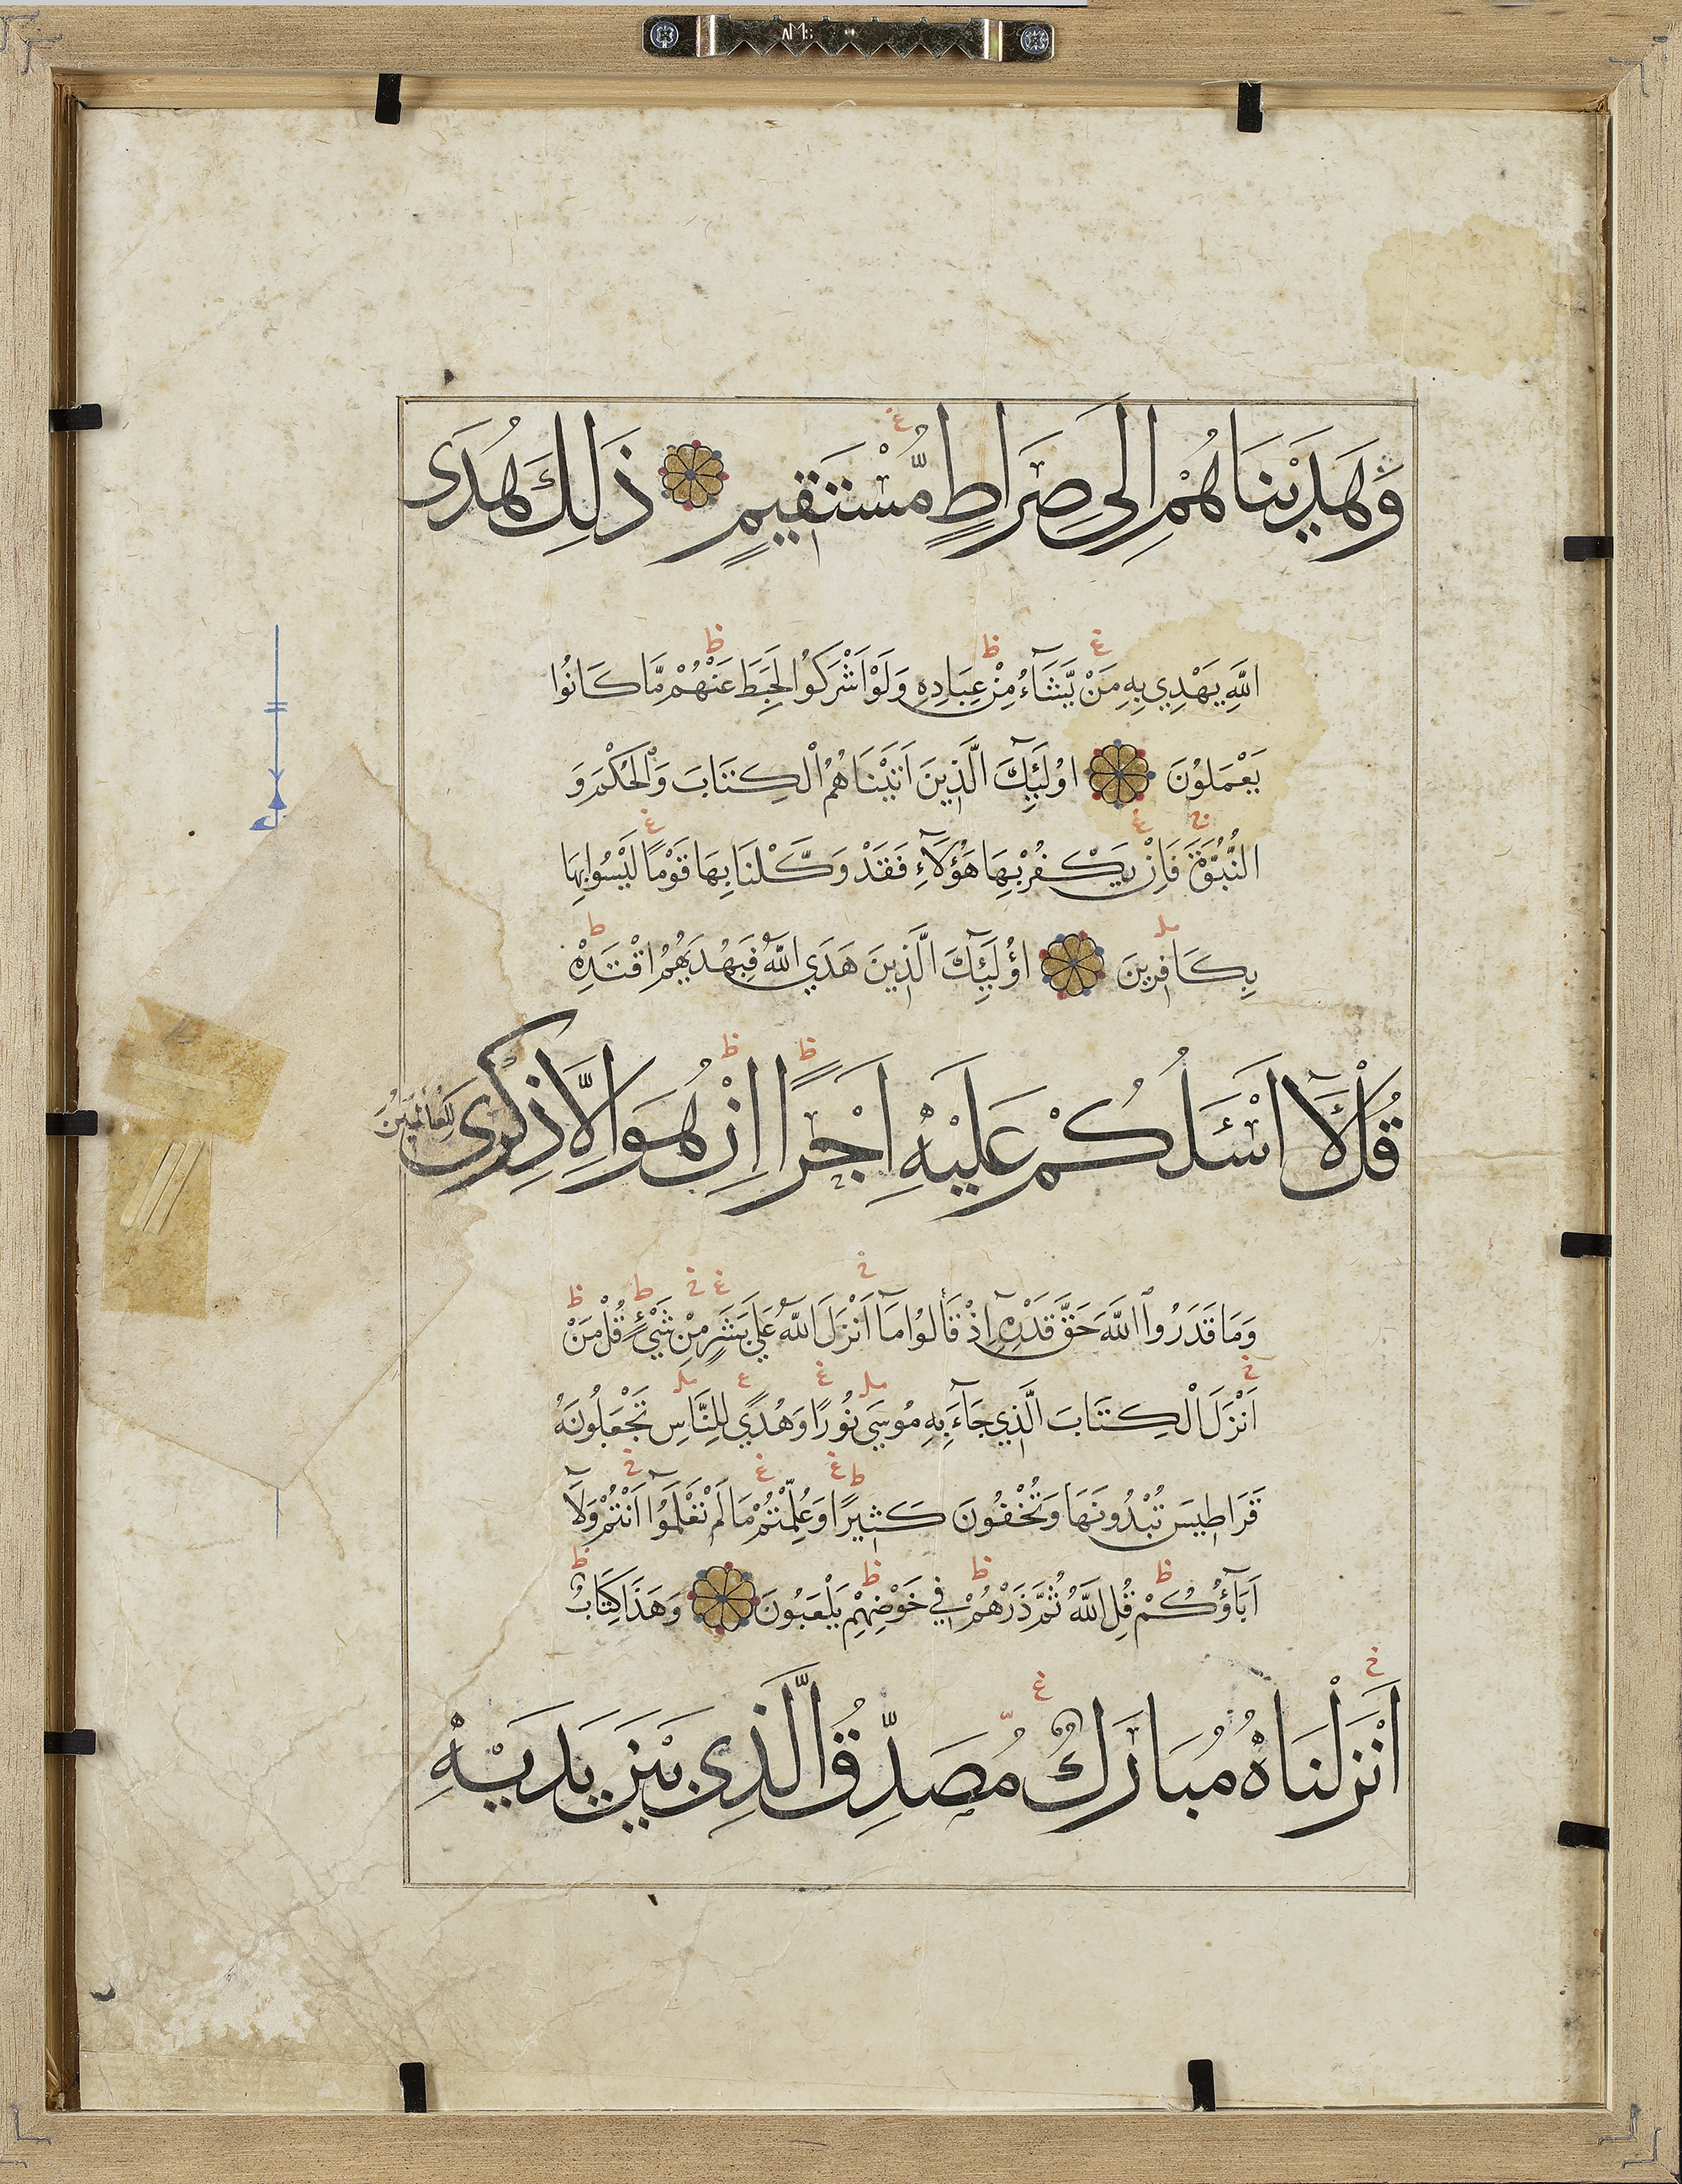 وَهَدَيْنَاهُمْ اِلَى صِرَاطٍ مُّسْتَقِيمٍ ذَلِكَ هُدَى
اللَّهِ يَهْدِي بِهِ مَنْ يَّشَآءُ مِنْ عِبَادِهِ وَلَوْ اَشْرَكُوا لَحَبِطَ عَنْهُمْ مَّا كَانُوا
يَعْمَلُوْنَ اوُلَئِكَ الَّذِينَ اَتَيْنَاهُمُ الْكِتَابَ وَالْحُكْمَ وَ
النُّبُوَّةَ فَاِنْ يَكْفُرْ بِهَا هَؤُلَآءِ فَقَدْ وَكَّلْنَا بِهَا قَوْمًا لَيْسُوا بِهَا
بِكَافِرِينَ اؤُلَئِكَ الَّذِينَ هَدَي اللَّهُ فَبِهُدَيهُمُ اقْتَدِهْ
قُلْ لَآ اَسْئَلُكُمْ عَلَيْهِ اَجْرًا اِنْ هُوَ اِلَّا ذِكْرَى
لِلْعَالَمِينَ
وَمَا قَدَرُوا اللَّهَ حَقَّ قَدْرِهِ اِذْ قَالُوا مَآ اَنْزَلَ اللَّهُ عَلَي بَشَرٍ مِنْ شَيْءٍ قُلْ مَنْ
اَنْزَلَ الْكِتَابَ الَّذِي جَآءَ بِهِ مُوسَي نُورًا وَهُدًي لِلنَّاسِ تَجْعَلُونَهُ
قَرَاطِيسَ تُبْدُونَهَا وَتُخْفُونَ كَثِيرًا وَعُلِّمْتُمْ مَا لَمْ تَعْلَمُوآ اَنْتُمْ وَلَآ
اَبَآؤُكُمْ قُلِ اللَّهُ ثُمَّ ذَرْهُمْ فِي خَوْضِهِمْ يَلْعَبُونَ وَهَذَا كِتَابٌ
اَنْزَلْنَاهُ مُبَارَكٌ مُصَدِّقُ الَّذِى بَيْنَ يَدَيْهِ